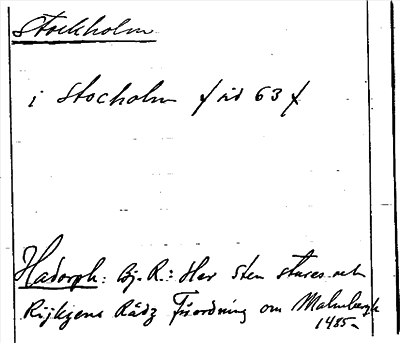 Stockholm
i Stocholm / sid 63 /
Hadorph: Bj. R.: Her Sten stures och
Rijkzens Rådz Förordning om Malmbergh
1485